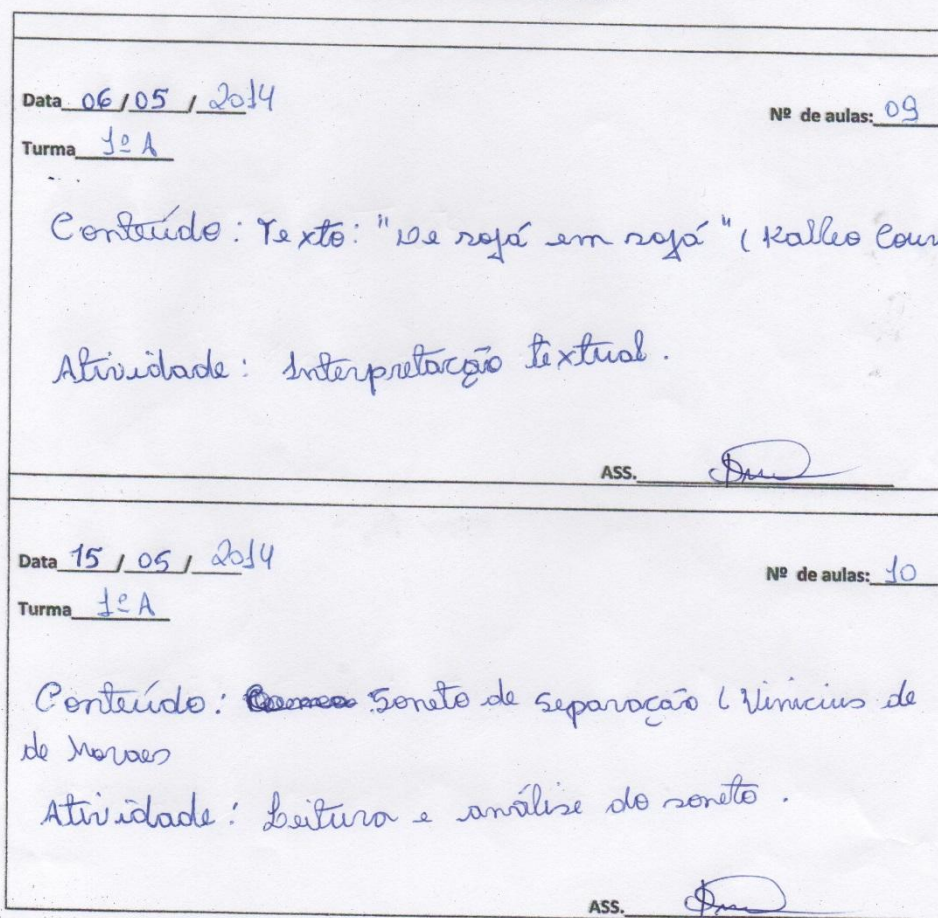 Data 06 / 05 / 2014 Nº de aulas: 09
Turma 1º A
Conteúdo: Texto: "De sofá em sofá" (Kalleo Cour
Atividade: Interpretação textual.
ASS.
Data 15 / 05 / 2014 Nº de aulas: 10
Turma 1º A
Conteúdo: Soneto de Separação (Vinicius de
de Moraes
Atividade: Leitura e análise do soneto.
ASS.